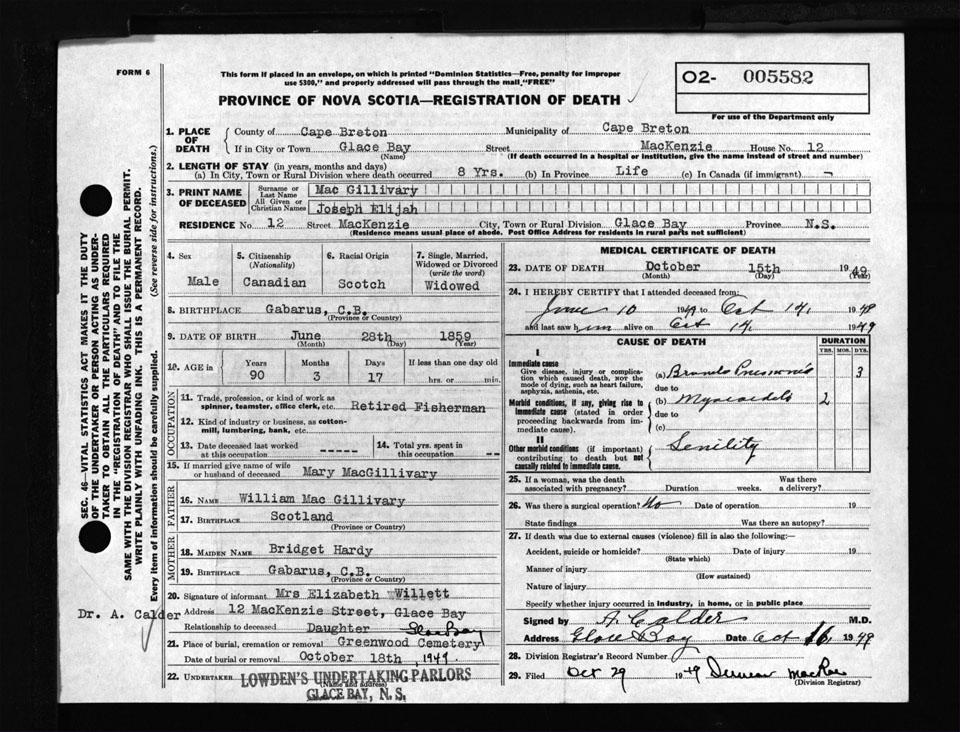 FORM 6
This form if placed in an envelope, on which is printed "Dominion Statistics—Free, penalty for improper
use $300," and properly addressed will pass through the mail "FREE"
O2- 005582
For use of the Department only
PROVINCE OF NOVA SCOTIA—REGISTRATION OF DEATH
1. PLACE OF DEATH
County of Cape Breton Municipality of Cape Breton
If in City or Town Glace Bay Street MacKenzie House No. 12
(Name) (If death occurred in a hospital or institution, give the name instead of street and number)
2. LENGTH OF STAY (in years, months and days)
(a) In City, Town or Rural Division where death occurred 8 Yrs. (b) In Province Life (c) In Canada (if immigrant) -
3. PRINT NAME OF DECEASED
Surname or Last Name Mac Gillivary
All Given or Christian Names Joseph Elijah
RESIDENCE No. 12 Street MacKenzie City, Town or Rural Division Glace Bay Province N.S.
(Residence means usual place of abode. Post Office Address for residents in rural parts not sufficient)
4. Sex Male
5. Citizenship (Nationality) Canadian
6. Racial Origin Scotch
7. Single, Married, Widowed or Divorced (write the word) Widowed
8. BIRTHPLACE Gabarus, C.B.
(Province or Country)
9. DATE OF BIRTH June 28th 1859
(Month) (Day) (Year)
10. AGE in Years 90 Months 3 Days 17 If less than one day old hrs. or min.
OCCUPATION
11. Trade, profession, or kind of work as spinner, teamster, office clerk, etc. Retired Fisherman
12. Kind of industry or business, as cotton-mill, lumbering, bank, etc.
13. Date deceased last worked at this occupation -----
14. Total yrs. spent in this occupation --
15. If married give name of wife or husband of deceased Mary MacGillivary
FATHER
16. NAME William Mac Gillivary
17. BIRTHPLACE Scotland
(Province or Country)
MOTHER
18. MAIDEN NAME Bridget Hardy
19. BIRTHPLACE Gabarus, C.B.
(Province or Country)
20. Signature of informant Mrs Elizabeth Willett
Dr. A. Calder
Address 12 MacKenzie Street, Glace Bay
Relationship to deceased Daughter Glace Bay
21. Place of burial, cremation or removal Greenwood Cemetery
Date of burial or removal October 18th 1949.
22. UNDERTAKER LOWDEN'S UNDERTAKING PARLORS
(Name and address)
GLACE BAY, N. S.
MEDICAL CERTIFICATE OF DEATH
23. DATE OF DEATH October 15th 1949
(Month) (Day) (Year)
24. I HEREBY CERTIFY that I attended deceased from:
June 10 1949 to Oct 14, 1949
and last saw him alive on Oct 14 1949
CAUSE OF DEATH
DURATION
YRS. MOS. DYS.
I
Immediate cause
Give disease, injury or complication which caused death, NOT the mode of dying, such as heart failure, asphyxia, asthenia, etc.
(a) Broncho Pneumonia 3
due to
Morbid conditions, if any, giving rise to immediate cause (stated in order proceeding backwards from immediate cause).
(b) 2
due to
(c)
II
Other morbid conditions (if important) contributing to death but not causally related to immediate cause.
Senility
25. If a woman, was the death associated with pregnancy? Duration weeks. Was there a delivery?
26. Was there a surgical operation? No Date of operation 19
State findings Was there an autopsy?
27. If death was due to external causes (violence) fill in also the following:—
Accident, suicide or homicide? Date of injury 19
(State which)
Manner of injury
(How sustained)
Nature of injury
Specify whether injury occurred in industry, in home, or in public place
Signed by A Calder M.D.
Address Glace Bay Date Oct 16, 1949
28. Division Registrar's Record Number
29. Filed Oct 29 1949 Duncan MacRae
(Division Registrar)
SEC. 46—VITAL STATISTICS ACT MAKES IT THE DUTY
OF THE UNDERTAKER OR PERSON ACTING AS UNDER-
TAKER TO OBTAIN ALL THE PARTICULARS REQUIRED
IN THE "REGISTRATION OF DEATH" AND TO FILE THE
SAME WITH THE DIVISION REGISTRAR WHO SHALL ISSUE THE BURIAL PERMIT.
WRITE PLAINLY WITH UNFADING INK. THIS IS A PERMANENT RECORD.
Every item of information should be carefully supplied. (See reverse side for instructions.)